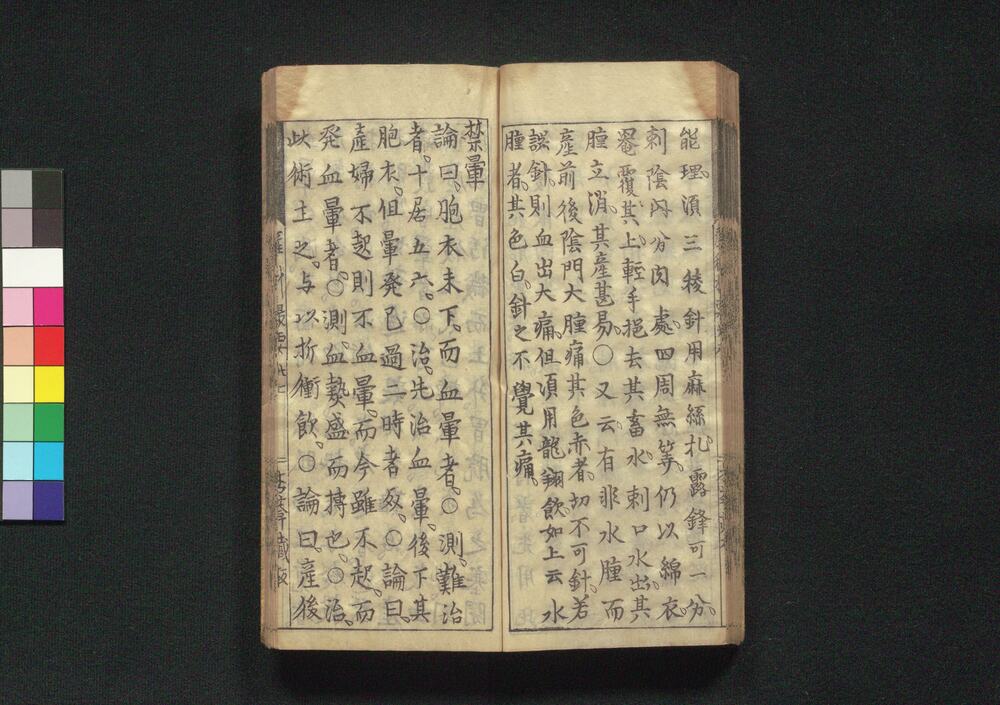 能理。須三稜針用麻絲札。露鋒可一分。
刺陰門分肉處。四周無等。仍以綿衣。
罨覆其上。輕手挹去其畜水。刺口水出。其
腫立消。其産甚易。〇又云。有非水腫而
産前後陰門大腫痛其色赤者。切不可針。若
誤針。則血出大痛。但須用龍翔飲。如上云水
腫者。其色白。針之不覺其痛。
禁暈
論曰。胞衣未下。而血暈者。〇測。難治
者。十居五六。〇治。先治血暈。後下其
胞衣。但暈発已過二時者死。〇論曰。
産婦不起則不血暈。而今雖不起。而
発血暈者。〇測。血熱盛而摶也。〇治。
此術主之。与以折衝飲。〇論曰。産後